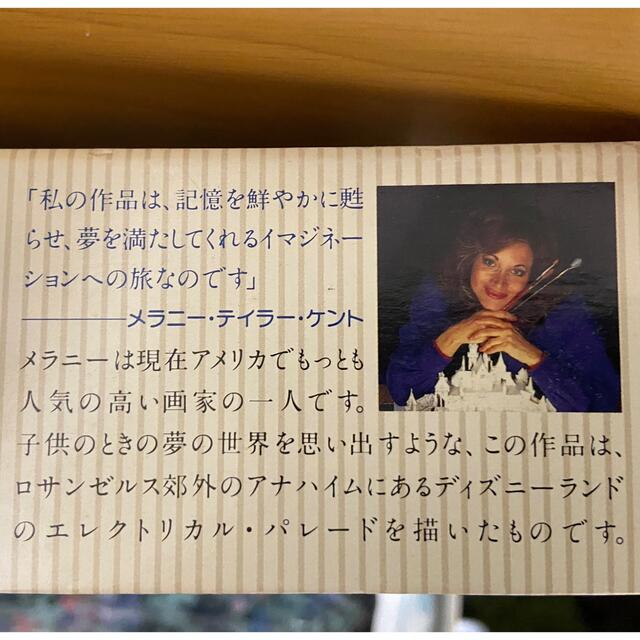 「私の作品は、記憶を鮮やかに甦
らせ、夢を満たしてくれるイマジネー
ションへの旅なのです」
メラニー・テイラー・ケント
メラニーは現在アメリカでもっとも
人気の高い画家の一人です。
子供のときの夢の世界を思い出すような、この作品は、
ロサンゼルス郊外のアナハイムにあるディズニーランド
のエレクトリカル・パレードを描いたものです。